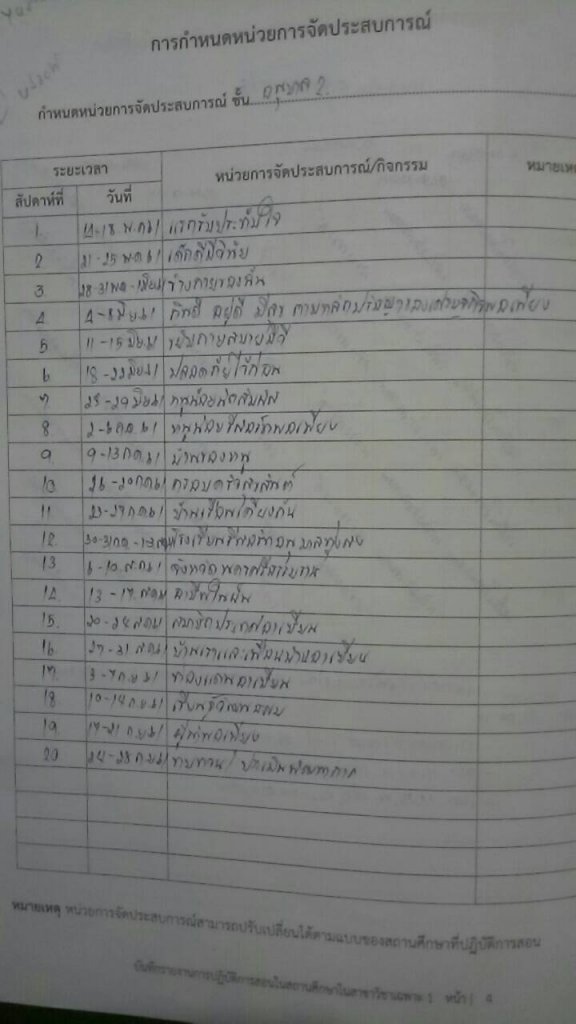 การกำหนดหน่วยการจัดประสบการณ์
กำหนดหน่วยการจัดประสบการณ์ ชั้น อนุบาล 2
ระยะเวลา หน่วยการจัดประสบการณ์/กิจกรรม หมายเหตุ
สัปดาห์ที่ วันที่
1 14-18 พ.ค. 61 แรกรับประทับใจ
2 21-25 พ.ค. 61 เด็กดีมีวินัย
3 28-31 พ.ค.-1 มิ.ย. 61 ร่างกายของฉัน
4 4-8 มิ.ย. 61 กินดี อยู่ดี มีสุข ตามหลักปรัชญาของเศรษฐกิจพอเพียง
5 11-15 มิ.ย. 61 ขยับกายสบายชีวี
6 18-22 มิ.ย. 61 ปลอดภัยไว้ก่อน
7 25-29 มิ.ย. 61 หนูน้อยสัมผัส
8 2-6 ก.ค. 61 หนูน้อยพอเพียง
9 9-13 ก.ค. 61 บ้านของหนู
10 16-20 ก.ค. 61 ครอบครัวสุขสันต์
11 23-27 ก.ค. 61 บ้านเรือนเคียงกัน
12 30-31 ก.ค. โรงเรียน
13 6-10 ส.ค. 61 จังหวัด
14 13-17 ส.ค. 61 อาชีพในฝัน
15 20-24 ส.ค. 61 สมาชิกประเทศอาเซียน
16 27-31 ส.ค. 61 บ้านเราและเพื่อนบ้านอาเซียน
17 3-7 ก.ย. 61 ท่องแดนอาเซียน
18 10-14 ก.ย. 61
19 17-21 ก.ย. 61
20 24-28 ก.ย. 61 ทบทวน/ประเมินพัฒนาการ
หมายเหตุ หน่วยการจัดประสบการณ์สามารถปรับเปลี่ยนได้ตามแบบของสถานศึกษาที่ปฏิบัติการสอน
บันทึกรายงานการปฏิบัติการสอนในสถานศึกษาในสาขาวิชาเฉพาะ 1 หน้า | 4